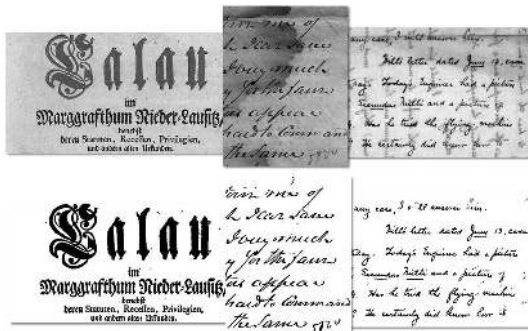 Calau
im
Marggrafthum Nieder-Lausitz,
benebst
deren Statuten, Recessen, Privilegien,
und andern alten Urkunden.
me of
h Dear Sam
Dony much
y for the Same
as appear
had to Command
the Same
any case, I will answer him.
Mills letter dated June 13, came
Today's Engineer had a picture
Mills and a picture of
Has he tried the flying machine
He certainly did know how it
Calau
im
Marggrafthum Nieder-Lausitz,
benebst
deren Statuten, Recessen, Privilegien,
und andern alten Urkunden.
me of
h Dear Sam
Dony much
y for the Same
as appear
had to Command
the Same
any case, I will answer him.
Mills letter dated June 13, came
Today's Engineer had a picture
Mills and a picture of
Has he tried the flying machine
He certainly did know how it